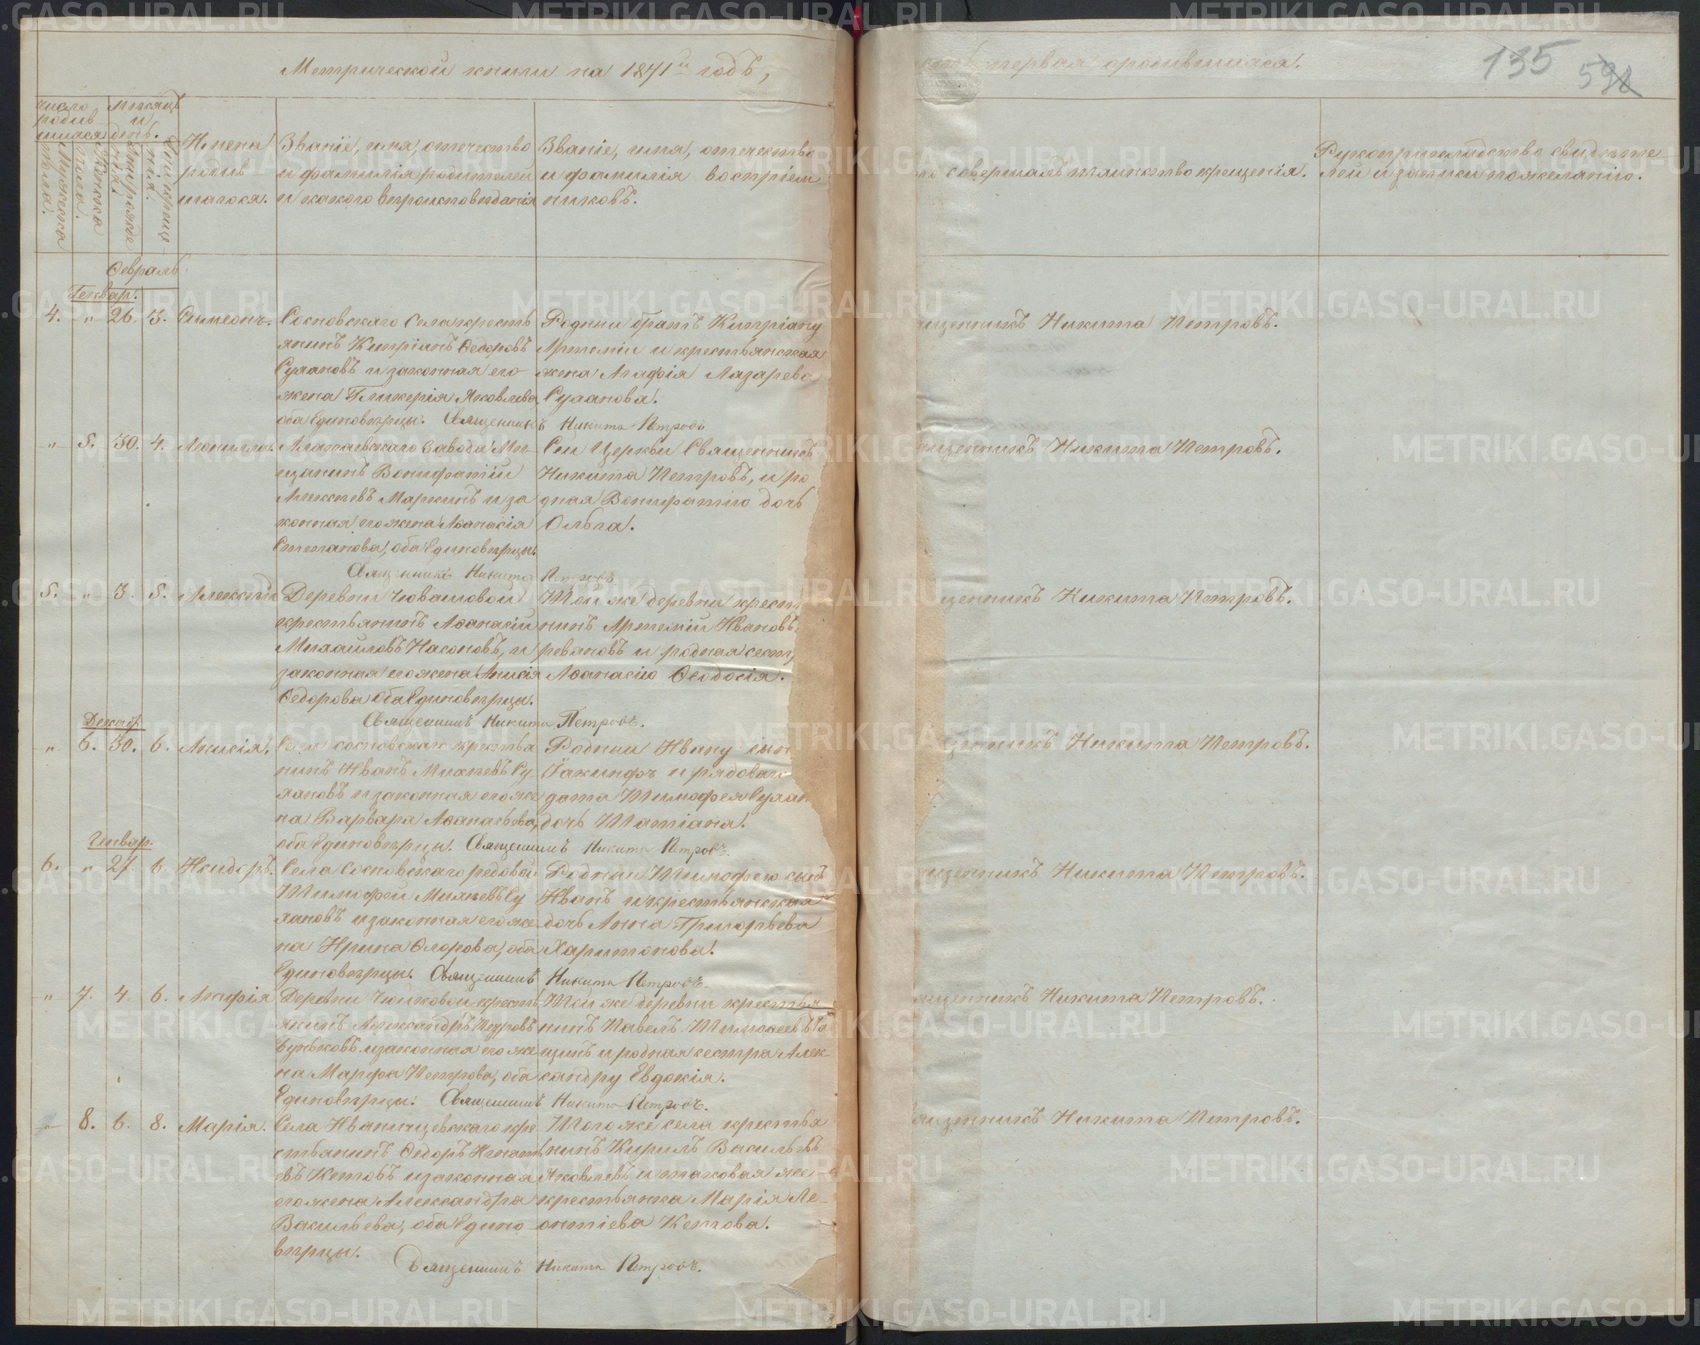 Метрической книги на 1841й годъ,
часть первая о родившихся.
135
Число родив-
шихся.
Мужеска пола.
Женска
Мѣсяцъ и день.
рожде
нія.
креще-
нія.
Имена
родив
шагося.
Званіе, имя, отечество
и фамилія родителей
и какого вѣроисповѣданія
Званіе, имя, отечество
и фамилія воспріем
никовъ.
совершалъ таинство крещенія.
Рукоприкладство свидѣте
лей и записки по желанію.
Февраль
Генвар.
4. " 26. 3. Симеонъ.
Сосновскаго села кресть
янинъ Кипріанъ Ѳедоровъ
Сулановъ и законная его
жена Гликерія Яковлева
оба единовѣрцы. Священникъ Никита Петровъ
Родный братъ Кипріану
Артемій и крестьянская
жена Агафія Лазарева
Суланова.
Священникъ Никита Петровъ.
" 5. 30. 4.
завода Мѣ
щанинъ Вонифатій
Алексѣевъ Маркинъ и за
конная его жена Аѳанасія
Степанова, оба единовѣрцы.
Священникъ Никита Петровъ
Сей Церкви Священникъ
Никита Петровъ, и ро
дная Вонифатію дочь
Ольга.
Священникъ Никита Петровъ.
5. " 3. 5. Алексѣй
Деревни Чювашовой
крестьянинъ Аѳанасій
Михайловъ Насоновъ, и
законная его жена Анисія
Ѳедорова оба единовѣрцы.
Священникъ Никита Петровъ.
Той же деревни крест
нинъ Артемій Ивановъ
и родная сест
Аѳанасію Ѳеодосія.
щенникъ Никита Петровъ.
Декабр.
" 6. 30. 6. Анисія.
Села сосновскаго крестья
нинъ Иванъ Михѣевъ Су
лановъ и законная его же
на Варвара Аѳанасьева,
оба единовѣрцы. Священникъ Никита Петровъ.
Родный Ивану сын
Іакинфъ и рядоваго
Тимофея Сулан
дочь Татіана.
щенникъ Никита Петровъ.
Генвар.
6. " 27. 6. Исидоръ.
Села Сосновскаго рядовой
Тимофей Михѣевъ Су
лановъ и законная его же
на Ирина Ѳлорова, оба
Единовѣрцы. Священникъ Никита Петровъ.
Родный Тимофею сынъ
Иванъ и крестьянская
дочь Анна Григорьева
Харитонова.
щенникъ Никита Петровъ.
" 7. 4. 6. Агафія
Деревни крестья
янинъ Александръ Петровъ
и законная его же
на Марфа Петрова, оба
Единовѣрцы. Священникъ Никита Петровъ.
Той же деревни крестья
нинъ Павелъ Тимоѳеевъ
и родная сестра Алек
сандру Евдокія.
щенникъ Никита Петровъ.
" 8. 6. 8. Марія.
Села Иванищевскаго кре
стьянинъ Ѳедоръ Игнать
евъ Кетовъ и законная
его жена Александра
Васильева, оба Едино
вѣрцы.
Священникъ Никита Петровъ.
Того же села крестья
нинъ Кирилъ Васильевъ
Яковлевъ и таковая же
крестьянка Марія Ле-
онтіева Кетова.
щенникъ Никита Петровъ.
METRIKI.GASO-URAL.RU